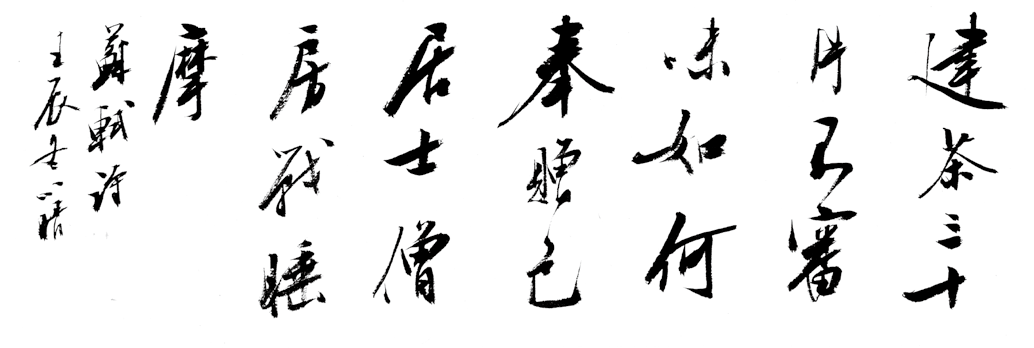 建茶三十
片不審
味如何
奉贈包
居士僧
房戰睡
摩
蘇軾詩
壬辰